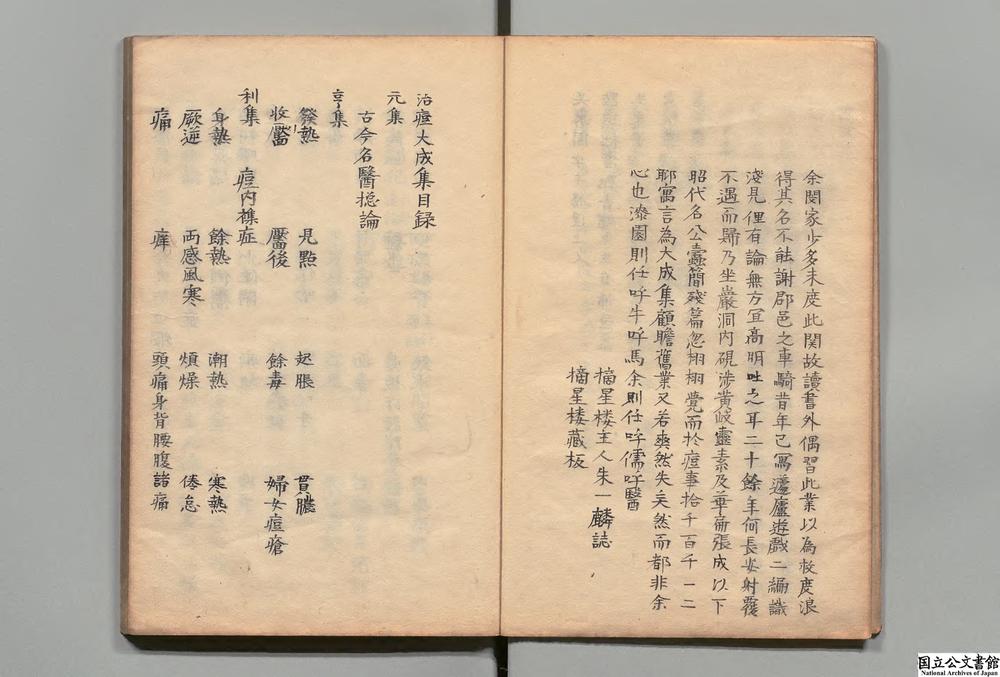 余閲家少多未度此関故讀書外偶習此業以為救度浪
得其名不能謝郡邑之車騎昔年已寓蘧廬遊戲二編識
淺見俚有論無方冝髙明吐之耳二十餘年何長安射覆
不遇而歸乃坐巖洞内硯涉黄岐靈素及華佗張成以下
昭代名公蠹簡殘篇忽栩栩覺而於痘事拾千百千一二
耶寓言為大成集顧瞻舊業又若爽然失矣然而都非余
心也漆園則任呼牛呼馬余則任呼儒呼醫
摘星楼主人朱一麟誌
摘星楼藏板
治痘大成集目録
元集
古今名醫揔論
亨集
發熱 見點 起脹 貫膿
收靨 靨後 餘毒 婦女痘瘡
利集 痘内襍症
身熱 餘熱 潮熱 寒熱
厥逆 両感風寒 煩燥 倦怠
痛 痒 頭痛身背腰腹諸痛
国立公文書館
National Archives of Japan